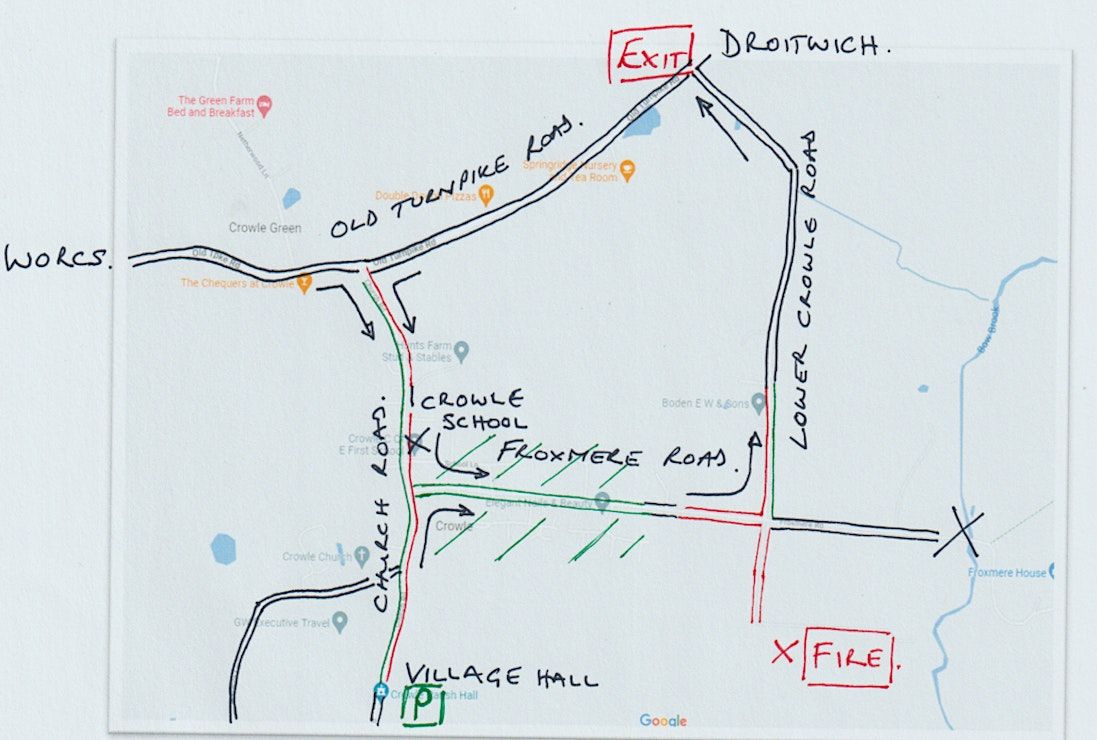 EXIT
DROITWICH.
The Green Farm
Bed and Breakfast
Netherwood Ln
Old Turnpike Rd
OLD TURNPIKE ROAD.
Springridge Nursery
Tea Room
Double
Pizzas
Crowle Green
LOWER CROWLE ROAD
WORCS.
Old Tpke Rd
Old Turnpike Rd
The Chequers at Crowle
Bow Brook
Stud & Stables
CROWLE
SCHOOL
Boden E W & Sons
CHURCH ROAD.
E First School
X
FROXMERE ROAD.
Elegant Nails & Beauty
Crowle
X
Crowle Church
Froxmere House
GW Executive Travel
X FIRE.
VILLAGE HALL
P
Google